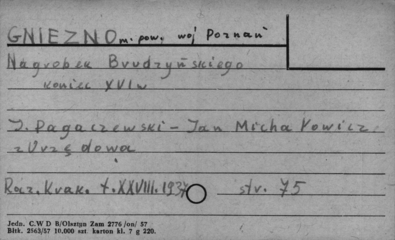 GNIEZNO m. pow. woj Poznań
Nagrobek Brudzyńskiego
koniec XVI w
J. Pagaczewski - Jan Michałowicz
z Urzędowa
Roz. Krak. t. XXVIII. 1937 str. 75
Jedn. C.W D 8/Olsztyn Zam 2776/on/ 57
Bitk. 2563/57 10.000 szt karton kl. 7 g 220.